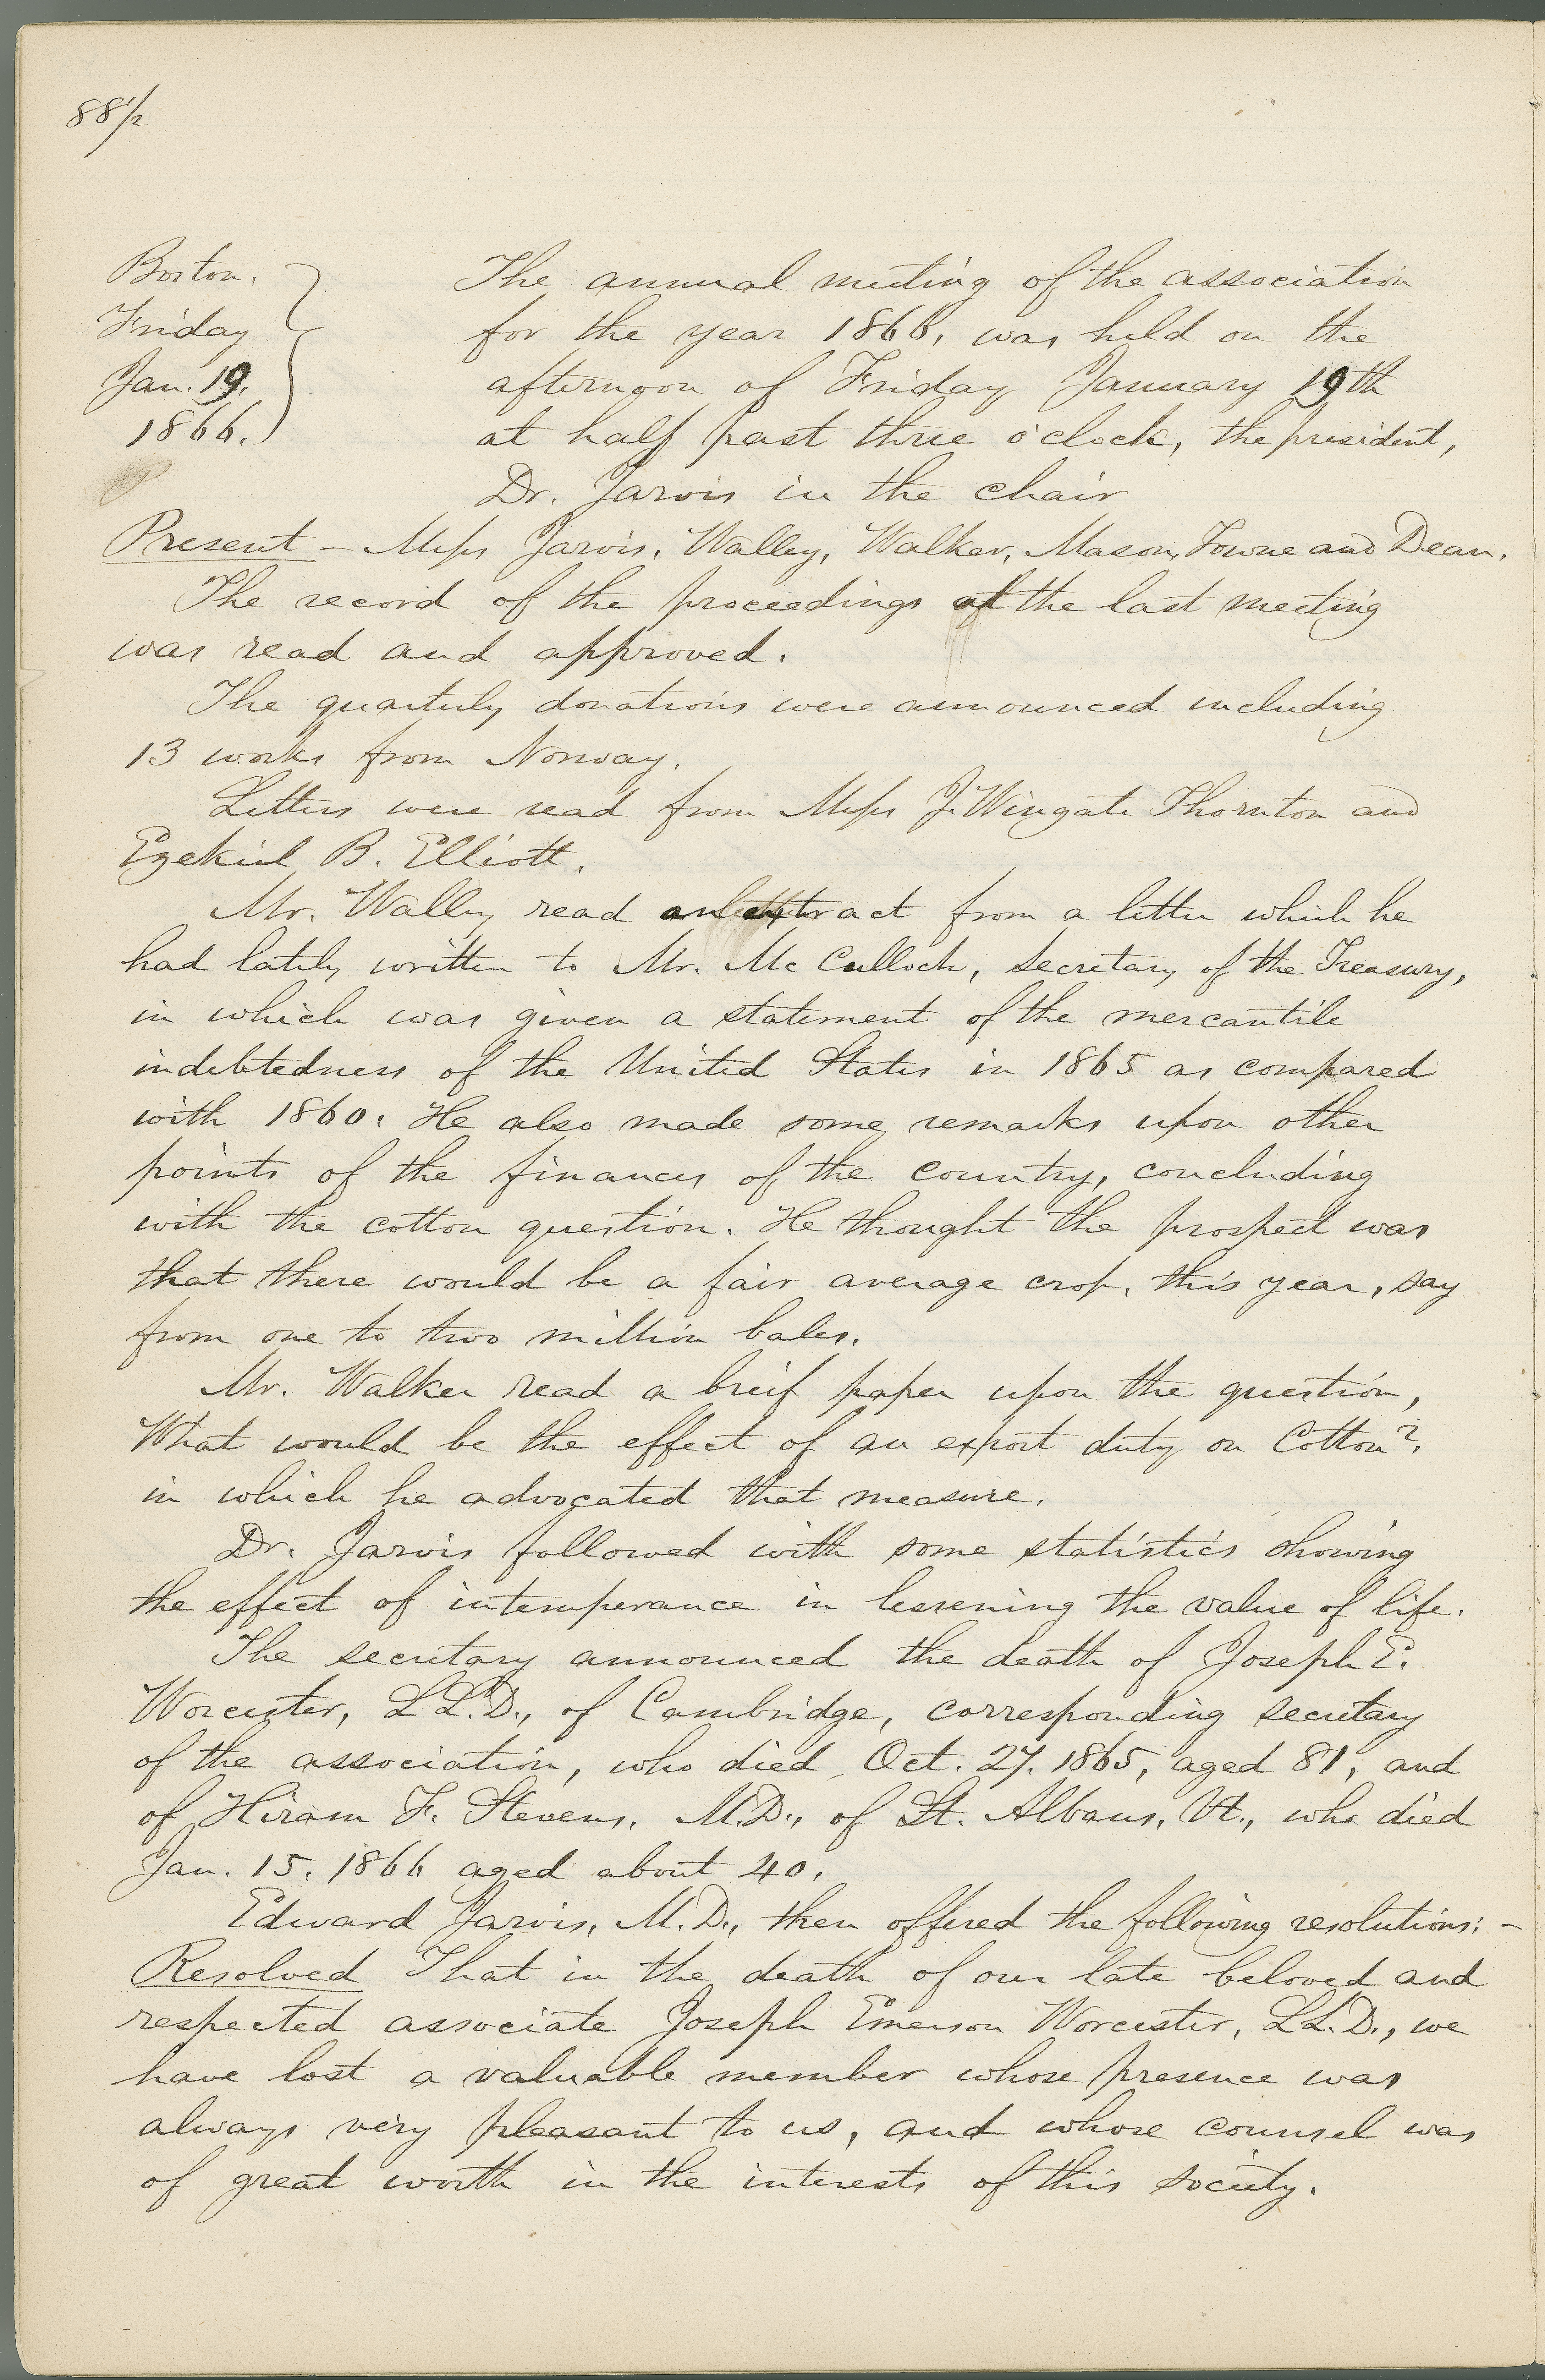 88 1/2
Boston,
Friday
Jan. 19,
1866.
The annual meeting of the association
for the year 1866, was held on the
afternoon of Friday January 19th
at half past three o'clock, the president,
Dr. Jarvis in the chair
Present – Messrs Jarvis, Walley, Walker, Mason, Towne and Dean.
The record of the proceedings of the last meeting
was read and approved.
The quarterly donations were announced including
13 works from Norway.
Letters were read from Messrs J. Wingate Thornton and
Ezekiel B. Elliott.
Mr. Walley read an extract from a letter which he
had lately written to Mr. Mc Culloch, secretary of the Treasury,
in which was given a statement of the mercantile
indebtedness of the United States in 1865 as compared
with 1860. He also made some remarks upon other
points of the finances of the country, concluding
with the cotton question. He thought the prospect was
that there would be a fair average crop, this year, say
from one to two million bales.
Mr. Walker read a breif paper upon the question,
What would be the effect of an export duty on Cotton?,
in which he advocated that measure.
Dr. Jarvis followed with some statistics showing
the effect of intemperance in lessening the value of life.
The secretary announced the death of Joseph E.
Worcester, LL.D., of Cambridge, corresponding secretary
of the association, who died Oct. 27. 1865, aged 81, and
of Hiram F. Stevens, M.D., of St. Albans, Vt., who died
Jan. 15, 1866 aged about 40.
Edward Jarvis, M.D., then offered the following resolutions: –
Resolved That in the death of our late beloved and
respected associate Joseph Emerson Worcester, LL.D., we
have lost a valuable member whose presence was
always very pleasant to us, and whose counsel was
of great worth in the interests of this society.